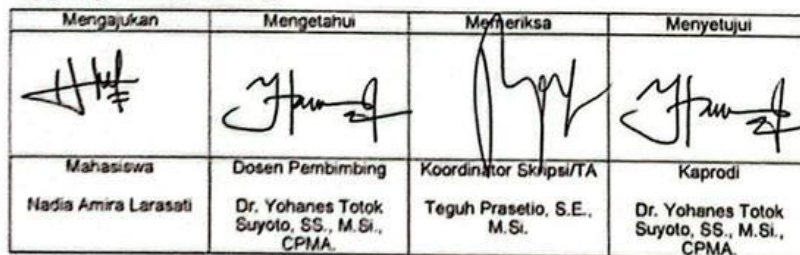 Mengajukan Mengetahui Memeriksa Menyetujui
Mahasiswa Dosen Pembimbing Koordinator Skripsi/TA Kaprodi
Nadia Amira Larasati Dr. Yohanes Totok Teguh Prasetio, S.E., Dr. Yohanes Totok
Suyoto, SS., M.Si., M.Si. Suyoto, SS., M.Si.,
CPMA. CPMA.